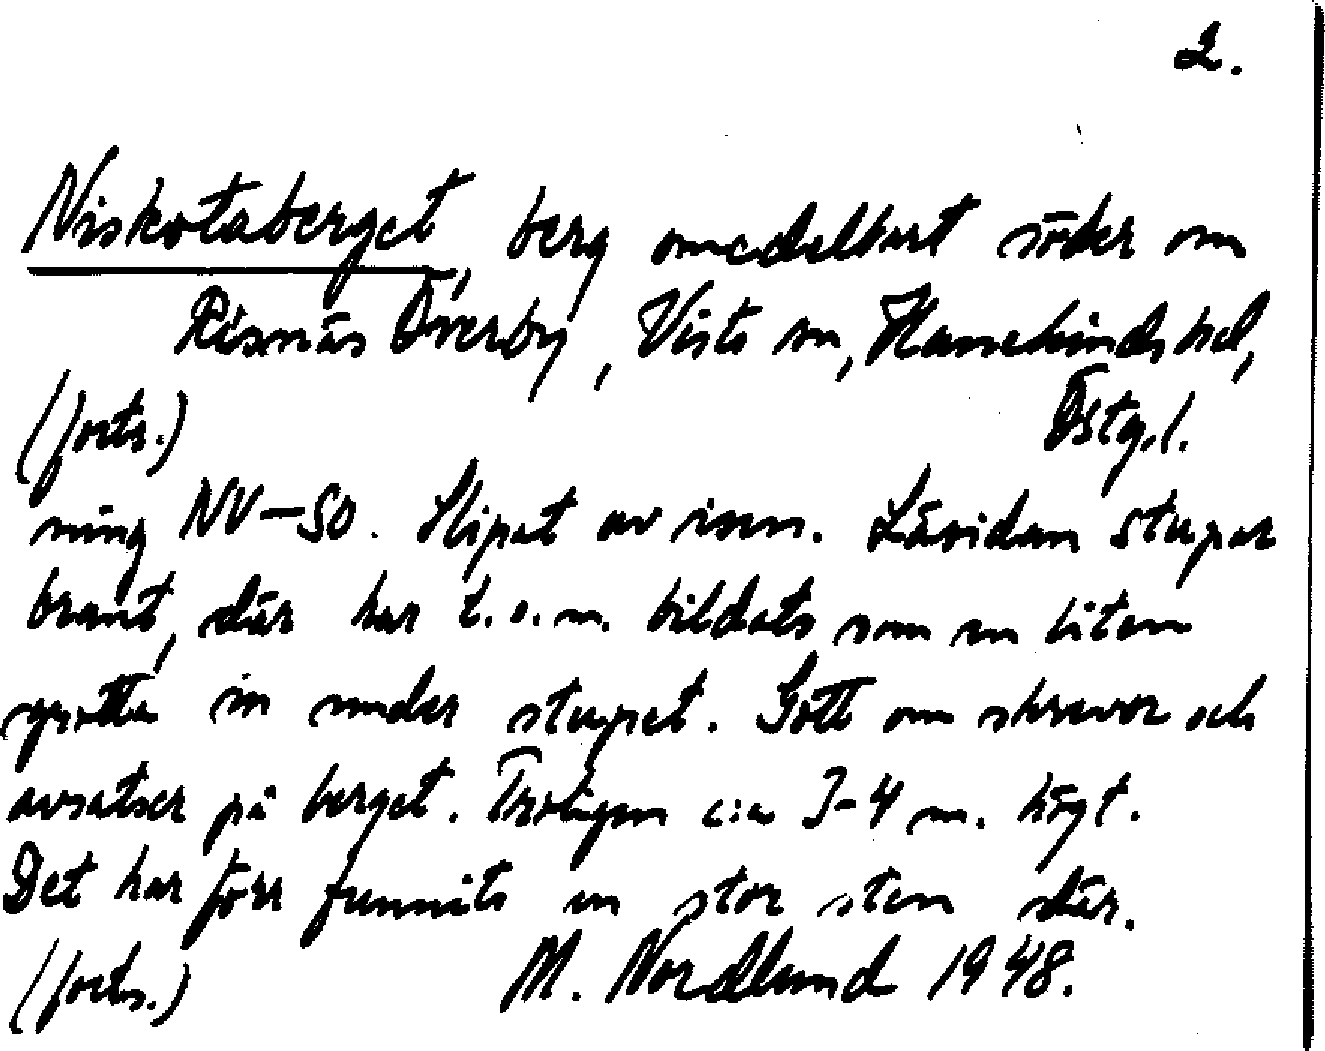 2.
Niskotaberget, berg omedelbart söder om
Risnäs Överby, Vists sn, Hanekinds hd,
(forts.) Östg.l.
ning NV-SO. Slipat av isen. Läsidan stupar
brant, där har t.o.m. bildats som en liten
grotta in under stupet. Gott om skrevor och
avsatser på berget. Troligen c:a 3-4 m. högt.
Det har förr funnits en stor sten där.
(forts.) M. Nordlund 1948.